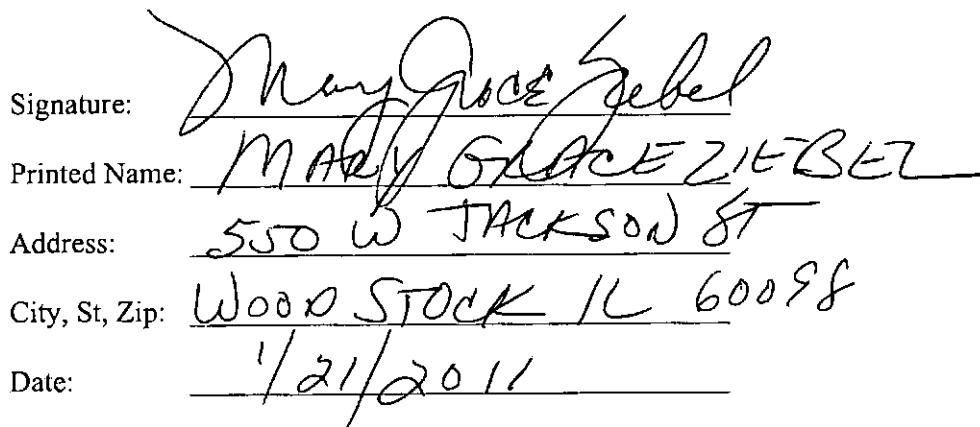 Signature: Mary Grace Ziebel
Printed Name: MARY GRACE ZIEBEL
Address: 550 W JACKSON ST
City, St, Zip: WOODSTOCK IL 60098
Date: 1/21/2011